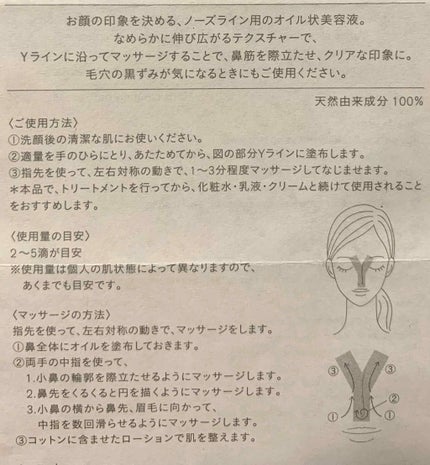 お顔の印象を決める、ノーズライン用のオイル状美容液。
なめらかに伸び広がるテクスチャーで、
Yラインに沿ってマッサージすることで、鼻筋を際立たせ、クリアな印象に。
毛穴の黒ずみが気になるときにもご使用ください。
天然由来成分 100%
〈ご使用方法〉
①洗顔後の清潔な肌にお使いください。
②適量を手のひらにとり、あたためてから、図の部分Yラインに塗布します。
③指先を使って、左右対称の動きで、1〜3分程度マッサージしてなじませます。
＊本品で、トリートメントを行ってから、化粧水・乳液・クリームと続けて使用されること
をおすすめします。
〈使用量の目安〉
2〜5滴が目安
※使用量は個人の肌状態によって異なりますので、
あくまでも目安です。
〈マッサージの方法〉
指先を使って、左右対称の動きで、マッサージをします。
①鼻全体にオイルを塗布しておきます。
②両手の中指を使って、
1.小鼻の輪郭を際立たせるようにマッサージします。
2.鼻先をくるくると円を描くようにマッサージします。
3.小鼻の横から鼻先、眉毛に向かって、
中指を数回滑らせるようにマッサージします。
③コットンに含ませたローションで肌を整えます。
③ ③
① ①
②